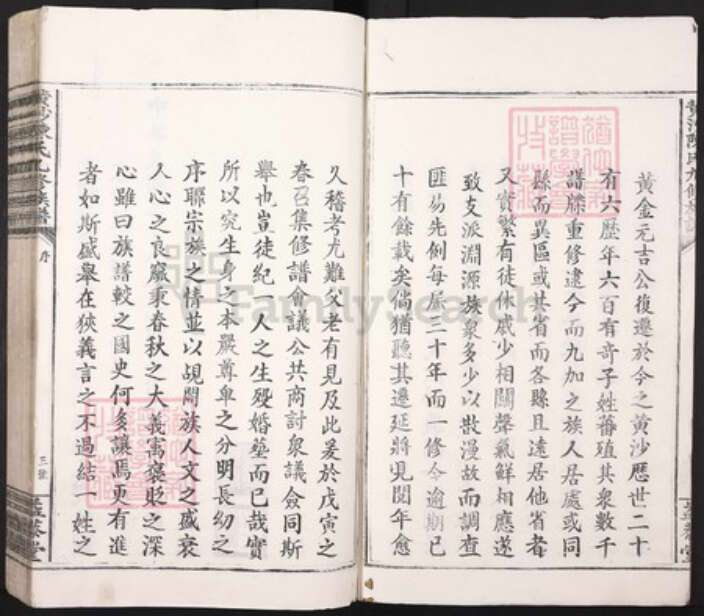 黃金元吉公復遷於今之黃沙歷世二十
有六歷年六百有奇子姓蕃殖其衆數千
譜牒重修逮今而九加之族人居處或同
縣而異區或其省而各縣且遠居他省者
又實繁有徒休戚少相關聲氣鮮相應遂
致支派淵源族衆多少以散漫故而調查
匪易先例每屆三十年而一修今逾期已
十有餘載矣倘猶聽其遷延將見閱年愈
久稽考尤難父老有見及此爰於戊寅之
春召集修譜會議公共商討衆議僉同斯
舉也豈徒紀一人之生歿婚墓而已哉實
所以究生身之本嚴尊卑之分明長幼之
序聯宗族之情並以覘閤族人文之盛衰
人心之良窳秉春秋之大義寓褒貶之深
心雖曰族譜較之國史何多讓焉更有進
者如斯盛舉在狹義言之不過結一姓之
黃沙陳氏九修族譜
序
三號
FamilySearch